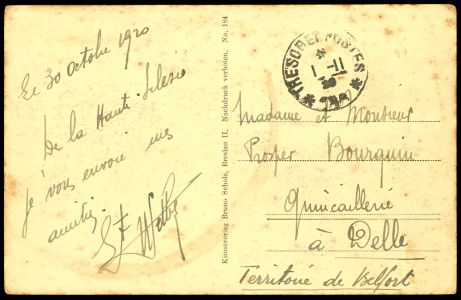 Le 30 Octobre 1920
De la Haute Silésie
je vous envoie mes
amitiés
Kunstverlag Bruno Scholz, Breslau II. Nachdruck verboten. No. 184
THESOR ET POSTES
1-11
20
Madame et Monsieur
Prosper Bourquin
Quincaillerie
à Delle
Territoire de Belfort